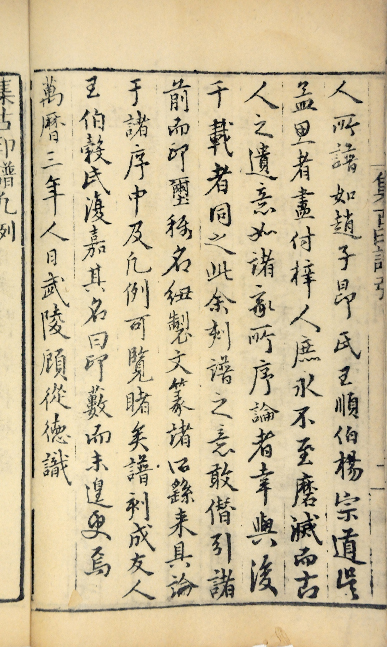 人所譜如趙子昂氏王順伯楊宗道吳
孟思者盡付梓人庶永不至磨滅而古
人之遺意如諸家所序論者幸與後
千載者同之此余刻譜之意敢僭引諸
前而印璽稱名紐製文篆諸沿繇來具論
于諸序中及凡例可覽睹矣譜刻成友人
王伯榖氏復嘉其名曰印藪而未遑更焉
萬曆三年人日武陵顧從德識
集古印譜凡例